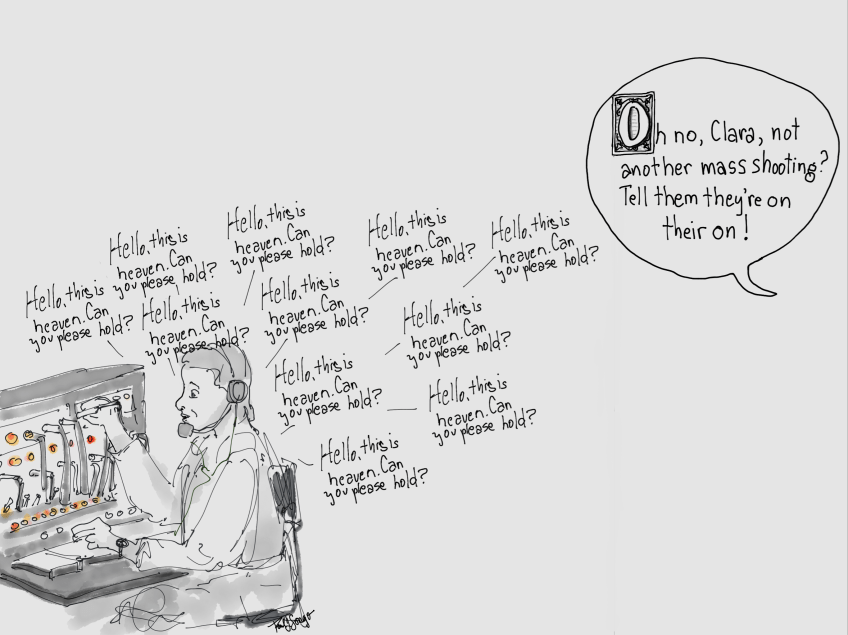 Oh no, Clara, not
another mass shooting?
Tell them they're on
their on!
Hello, this is
heaven. Can
you please hold?
Hello, this is
heaven. Can
you please hold?
Hello, this is
heaven. Can
you please hold?
Hello, this is
heaven. Can
you please hold?
Hello, this is
heaven. Can
you please hold?
Hello, this is
heaven. Can
you please hold?
Hello, this is
heaven. Can
you please hold?
Hello, this is
heaven. Can
you please hold?
Hello, this is
heaven. Can
you please hold?
Hello, this is
heaven. Can
you please hold?
Hello, this is
heaven. Can
you please hold?